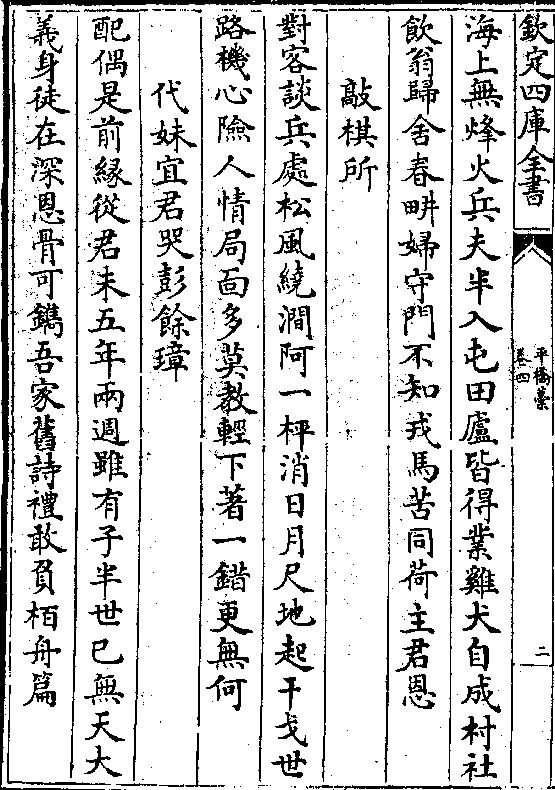 欽定四庫全書
平橋藁
卷四
二
海上無烽火兵夫半入屯田廬皆得業雞犬自成村社
飲翁歸舍春畊婦守門不知戎馬苦同荷主君恩
敲棋所
對客談兵處松風繞澗阿一枰消日月尺地起干戈世
路機心險人情局面多莫教輕下著一錯更無何
代妹宜君哭彭餘璋
配偶是前緣從君未五年兩週雖有子半世已無天大
義身徒在深恩骨可鐫吾家舊詩禮敢負栢舟篇